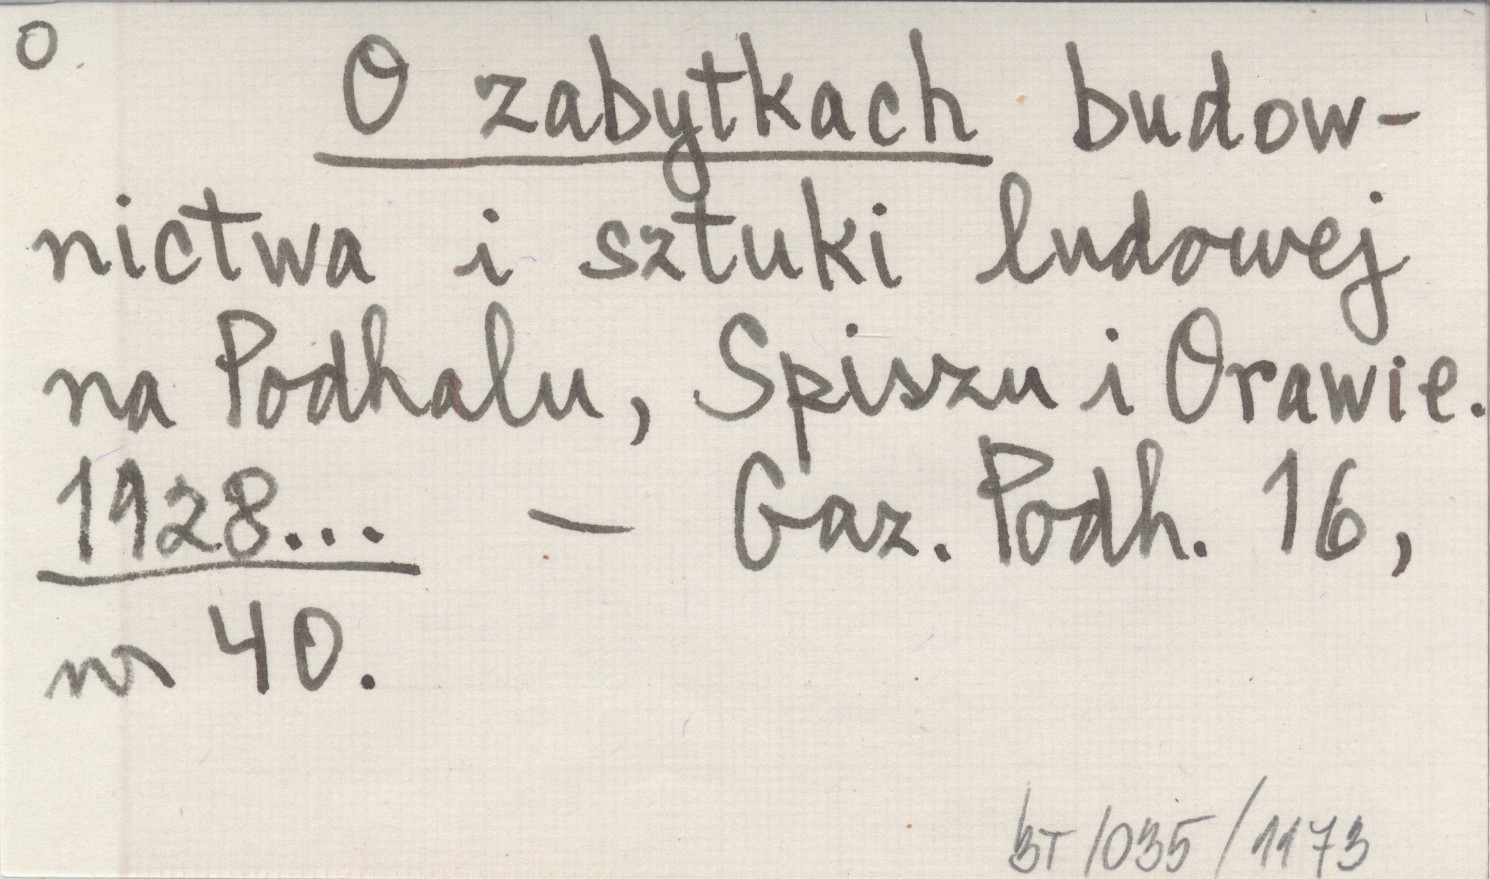 O
O zabytkach budow-
nictwa i sztuki ludowej
na Podhalu, Spiszu i Orawie.
1928... – Gaz. Podh. 16,
nr 40.
BT/035/1173